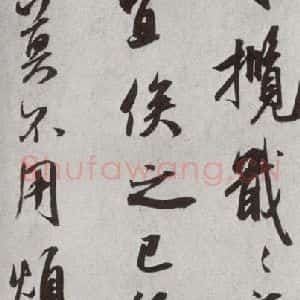 攬戢々
宜俟之已
莫不用煩
Shufawang.CN